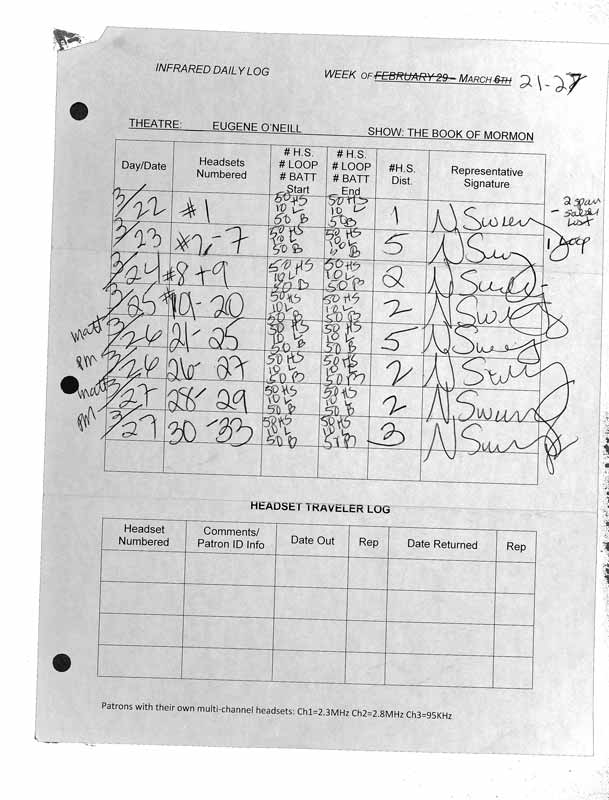 INFRARED DAILY LOG WEEK OF FEBRUARY 29 – MARCH 6TH 21-27
THEATRE: EUGENE O'NEILL SHOW: THE BOOK OF MORMON
Day/Date
Headsets
Numbered
# H.S.
# LOOP
# BATT
Start
# H.S.
# LOOP
# BATT
End
#H.S.
Dist.
Representative
Signature
3/22 #1 50 HS 10 L 50 B 50 HS 10 L 50 B 1
2 span
1 Jap
3/23 #2-7 50 HS 10 L 50 B 50 HS 10 L 50 B 5
3/24 #8+9 50 HS 10 L 50 B 50 HS 10 L 50 B 2
3/25 50 HS 10 L 50 B 50 HS 10 L 50 B 2
matt 3/26 21-25 50 HS 10 L 50 B 50 HS 10 L 50 B 5
pm 3/26 26-27 50 HS 10 L 50 B 50 HS 10 L 50 B 2
matt 3/27 28-29 50 HS 10 L 50 B 50 HS 10 L 50 B 2
pm 3/27 30-33 50 HS 10 L 50 B 50 HS 10 L 3
HEADSET TRAVELER LOG
Headset
Numbered
Comments/
Patron ID Info
Date Out
Rep
Date Returned
Rep
Patrons with their own multi-channel headsets: Ch1=2.3MHz Ch2=2.8MHz Ch3=95KHz